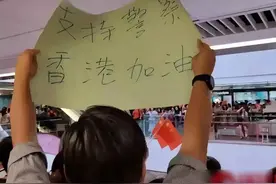 支持警察
香港加油